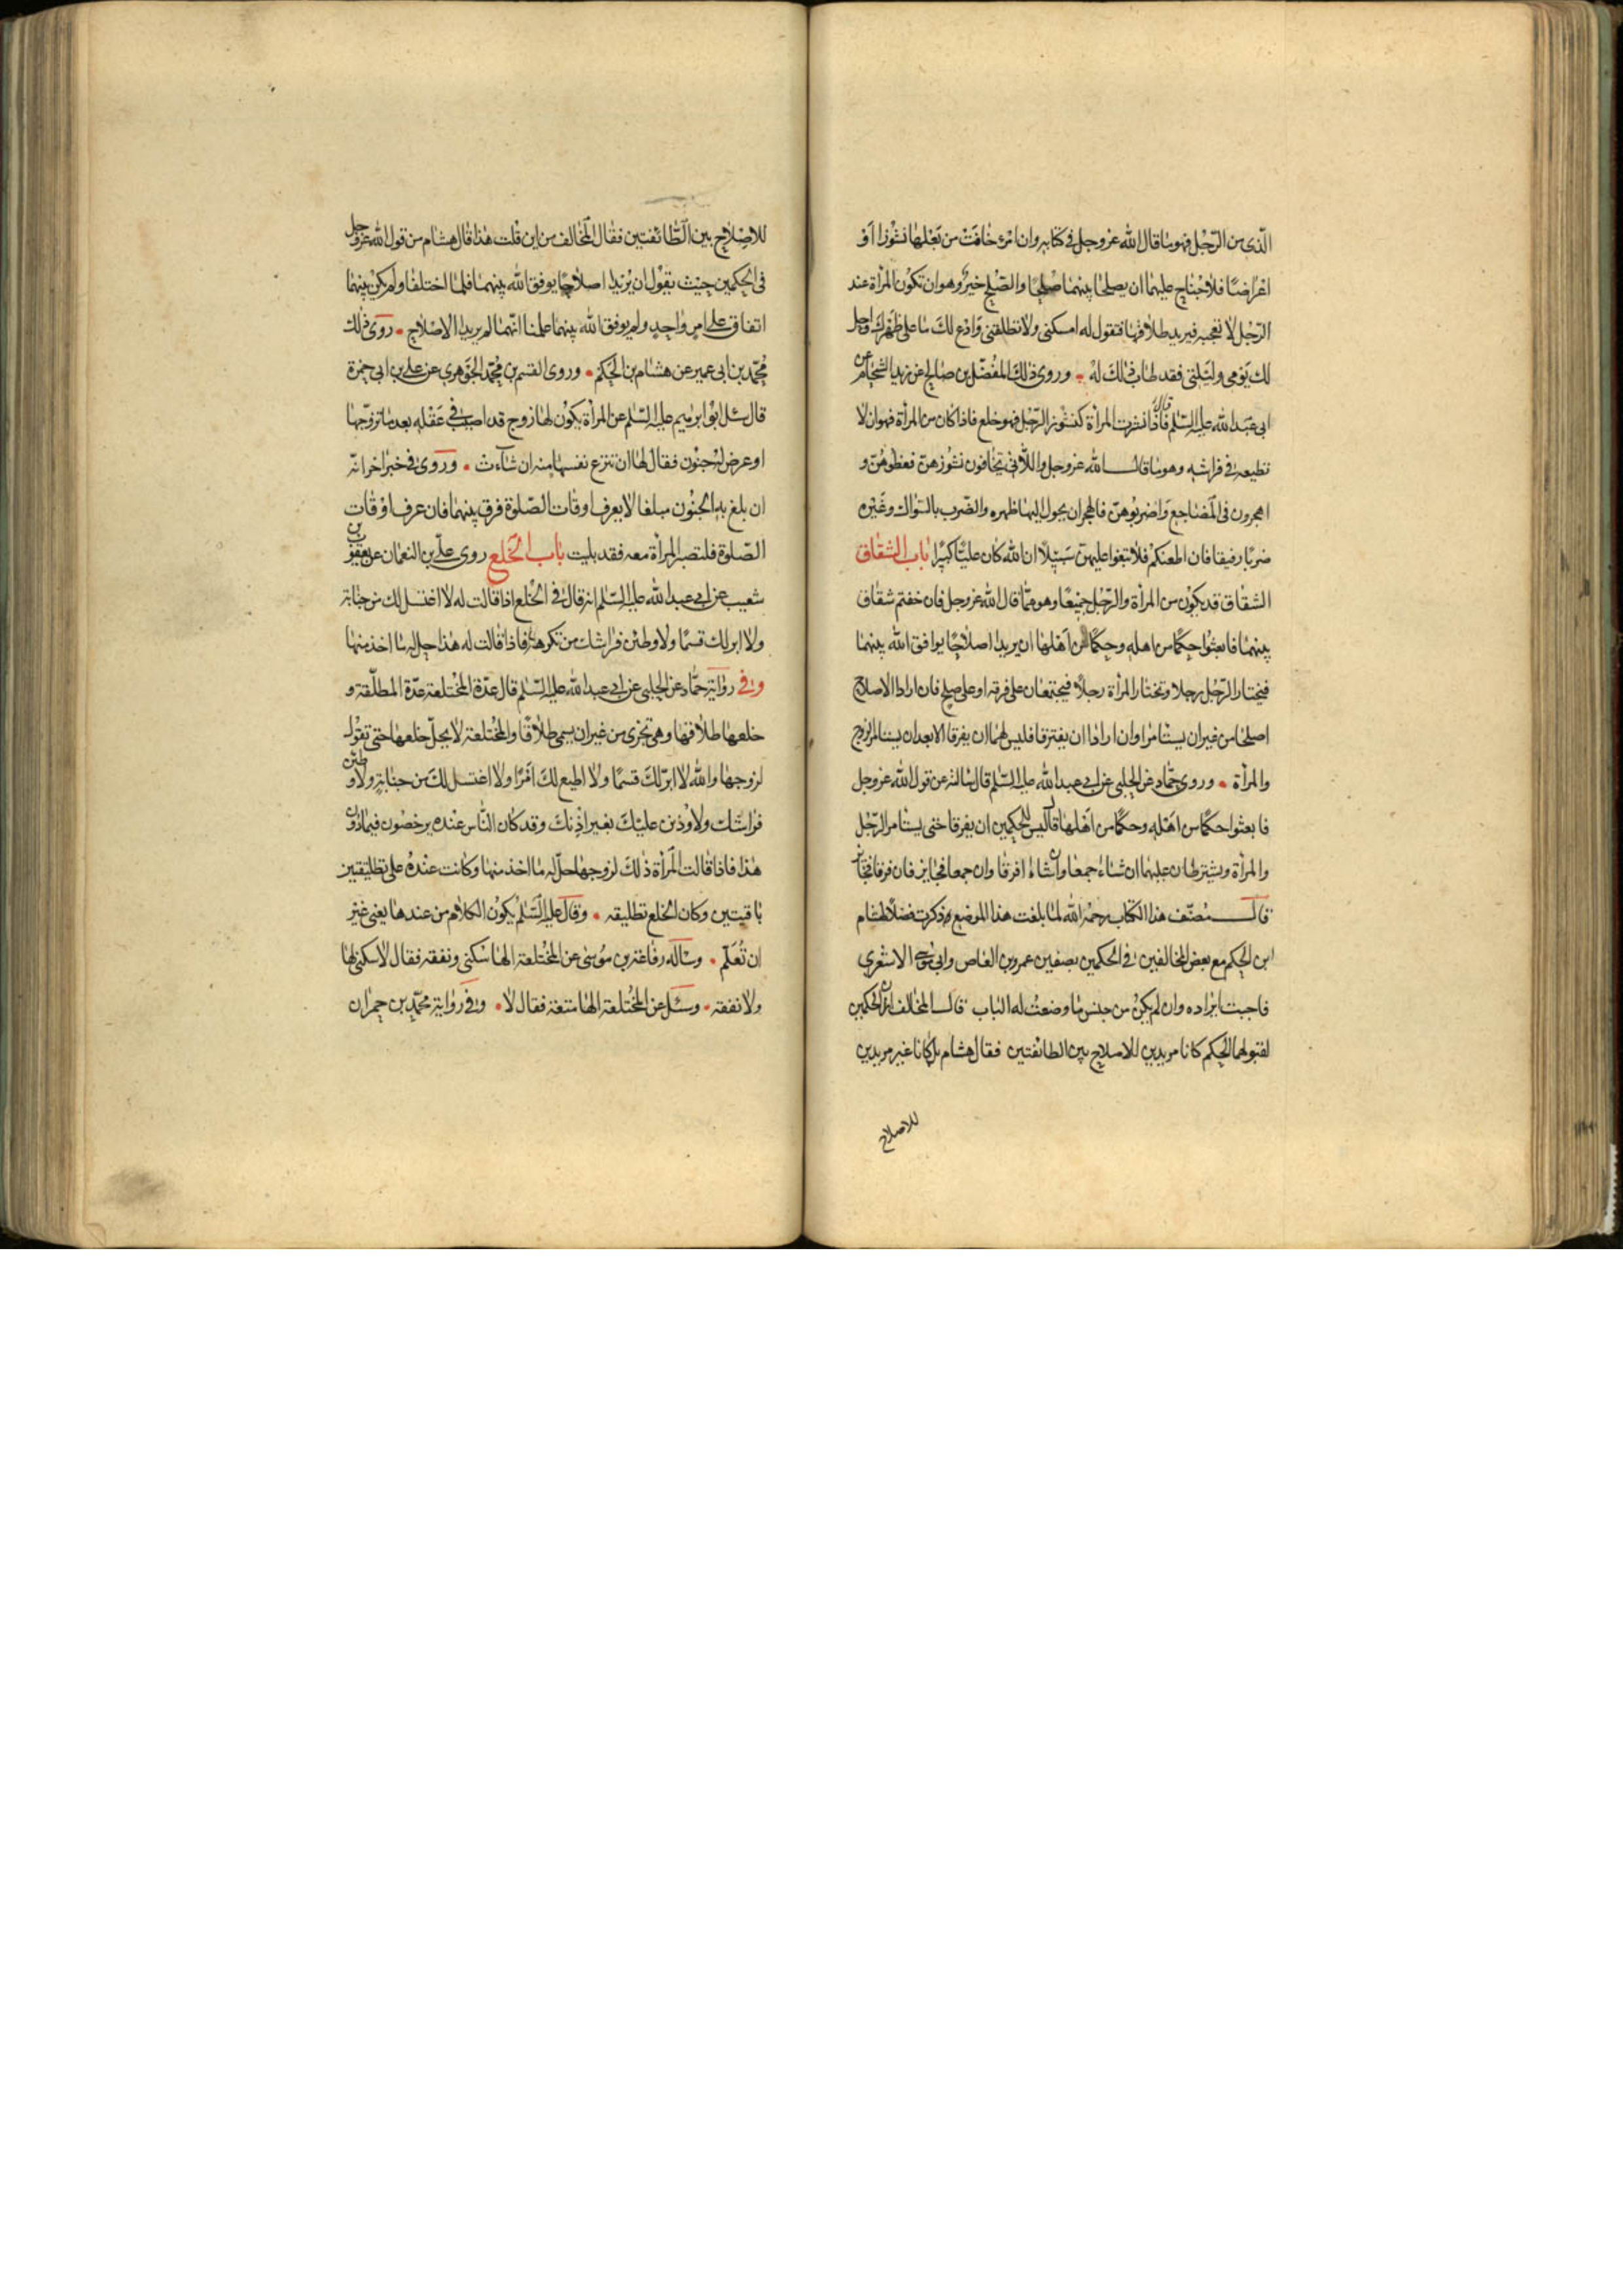 الّذى من الرّجل فهو ما قال الله عزوجل فى كتابه وان امرءة خافت من بعلها نشوزا او
اعراضًا فلا جناح عليهما ان يصلحا بينهما صلحًا والصّلح خير وهو ان تكون المرأة عند
الرّجل لا تعجبه فيريد طلاقها فتقول له امسكنى ولا تطلقنى وادع لك ما على ظهرك واحل
لك يومى وليلتى فقد طاب ذلك له • وروى ذلك المفضّل بن صالح عن زيد الشحّام عن
ابى عبد الله عليه السّلم قال فاذا نشزت المرأة كنشوز الرّجل فهو خلع فاذا كان من المرأة فهو ان لا
تطيعه فى فراشه وهو ما قال الله عزوجل واللّاتى تخافون نشوزهنّ فعظوهنّ و
اهجروهن فى المضاجع واضربوهنّ فالهجران يحول اليها ظهره والضّرب بالسّواك وغيره
ضربًا رفيقا فان اطعنكم فلا تبغوا عليهنّ سبيلًا ان الله كان عليًّا كبيرًا باب الشقاق
الشقاق قد يكون من المرأة والرّجل جميعًا وهو ممّا قال الله عزوجل فان خفتم شقاق
بينهما فابعثوا حكمًا من اهله وحكمًا من اهلها ان يريدا اصلاحًا يوافق الله بينهما
فيختار الرّجل رجلا وتختار المرأة رجلًا فيجتمعان على فرقه او على صلح فان ارادا الاصلاح
اصلحا من غير ان يستامرا وان ارادا ان يفترقا فليس لهما ان يفرقا الا بعد ان يستامرا الزوج
والمرأة • وروى حمّاد عن الحلبى عن ابى عبد الله عليه السّلم قال سالته عن قول الله عزوجل
فابعثوا حكمًا من اهله وحكمًا من اهلها قال ليس للحكمين ان يفرقا حتى يستامرا الرّجل
والمرأة ويشترطان عليهما ان شاءا جمعا وان شاءا فرقا وان جمعا فجايز فان فرقا فجايز
قال مصنّف هذا الكتاب رحمه الله لما بلغت هذا الموضع ذكرت فضلًا لهشام
ابن الحكم مع بعض المخالفين فى الحكمين بصفين عمرو بن العاص وابى موسى الاشعرى
فاحببت ايراده وان لم يكن من جنس ما وضعت له الباب قال المخالف ان الحكمين
لقبولهما الحكم كانا مريدين للاصلاح بين الطائفتين فقال هشام بل كانا غير مريدين
للاصلاح
للاصلاح بين الطّائفتين فقال المخالف من اين قلت هذا قال هشام من قول الله عزوجل
فى الحكمين حيث يقول ان يريدا اصلاحًا يوفق الله بينهما فلمّا اختلفا ولم يكن بينهما
اتفاق على امر واحد ولم يوفق الله بينهما علمنا انّهما لم يريدا الاصلاح • روى ذلك
محمّد بن ابى عمير عن هشام بن الحكم • وروى القسم بن محمّد الجوهرى عن على بن ابى حمزة
قال سئل ابو ابرهيم عليه السّلم عن المرأة يكون لها زوج قد اصيب فى عقله بعد ما تزوّجها
او عرض له جنون فقال لها ان تنزع نفسها منه ان شآءت • وروى فى خبر اخر انّه
ان بلغ به الجنون مبلغا لا يعرف اوقات الصّلوة فرق بينهما فان عرف اوقات
الصّلوة فلتصبر المرأة معه فقد بليت باب الخلع روى علىّ بن النعمان عن يعقوب بن
شعيب عن ابى عبد الله عليه السّلم انه قال فى الخلع اذا قالت له لا اغتسل لك من جنابة
ولا ابر لك قسمًا ولاوطئن فراشك من تكرهه فاذا قالت له هذا حل له ما اخذ منها
وفى رواية حمّاد عن الحلبى عن ابى عبد الله عليه السّلم قال عدّة المختلعة عدّة المطلّقة و
خلعها طلاقها وهى تجزى من غير ان يسمى طلاقًا والمختلعة لا يحلّ خلعها حتى تقول
لزوجها والله لا ابرّ لك قسمًا ولا اطيع لك امرًا ولا اغتسل لك من جنابة ولاوطئن
فراشك ولاوذنن عليك بغير اذنك وقد كان النّاس عنده يرخصون فيما دون
هذا فاذا قالت المرأة ذلك لزوجها حلّ له ما اخذ منها وكانت عنده على تطليقتين
باقيتين وكان الخلع تطليقه • وقال عليه السّلم يكون الكلام من عندها يعنى من غير
ان تعلّم • وسأله رفاعة بن موسى عن المختلعة الها سكنى ونفقه فقال لا سكنى لها
ولا نفقه • وسئل عن المختلعة الها متعة فقال لا • وفى رواية محمّد بن حمران